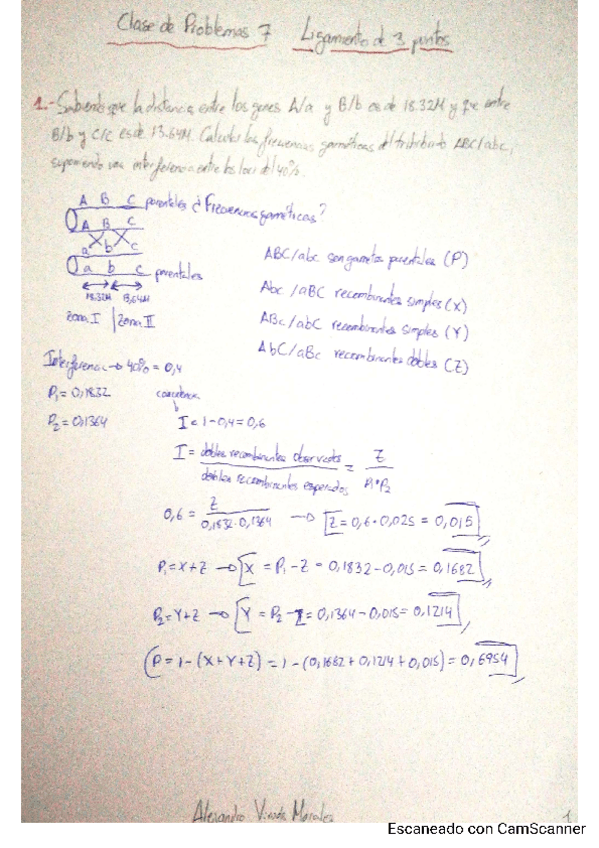 Clase de Problemas 7 Ligamiento de 3 puntos
1.- Sabiendo que la distancia entre los genes A/a y B/b es de 18.32M y que entre
B/b y C/c es de 13.64M. Calcular las frecuencias gaméticas del trihíbrido ABC/abc,
suponiendo una interferencia entre los loci del 40%.
A B C parentales ¿Frecuencias gaméticas?
A B C
a b c
a b c parentales
18.32M 13,64M
Zona I | Zona II
ABC/abc son gametos parentales (P)
Abc/aBC recombinantes simples (X)
ABc/abC recombinantes simples (Y)
AbC/aBc recombinantes dobles (Z)
Interferencia → 40% = 0,4
P₁ = 0,1832
P₂ = 0,1364
coincidencia
I = 1-0,4 = 0,6
I = dobles recombinantes observados / dobles recombinantes esperados = Z / P₁·P₂
0,6 = Z / 0,1832·0,1364 → Z = 0,6·0,025 = 0,015
P₁ = X+Z → X = P₁ - Z = 0,1832 - 0,015 = 0,1682
P₂ = Y+Z → Y = P₂ - Z = 0,1364 - 0,015 = 0,1214
P = 1-(X+Y+Z) = 1-(0,1682+0,1214+0,015) = 0,6954
Alejandro Morales
1
Escaneado con CamScanner